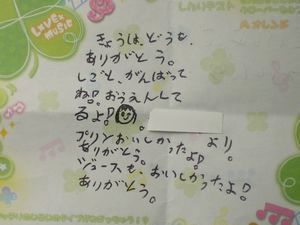 LOVE♪
MUSIC
きょうは、どうも、
ありがとう。
しごと、がんばって
ね!!おうえんして
るよ!!
より。
プリンおいしかったよ!!
ありがとう。
ジュースも、おいしかったよ!
ありがとう。